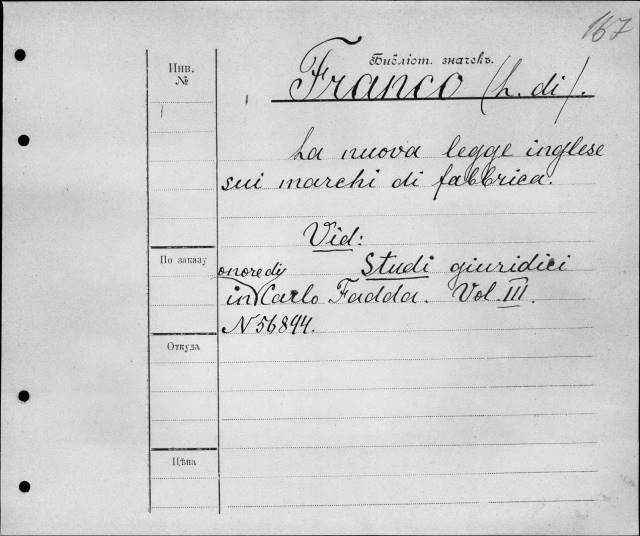 167
Библіот. значекъ.
Инв.
№
Franco (L. di).
La nuova legge inglese
sui marchi di fabbrica.
Vid:
По заказу
Studi giuridici
onore di
in Carlo Fadda. Vol. III.
N 56894.
Откуда
Цѣна